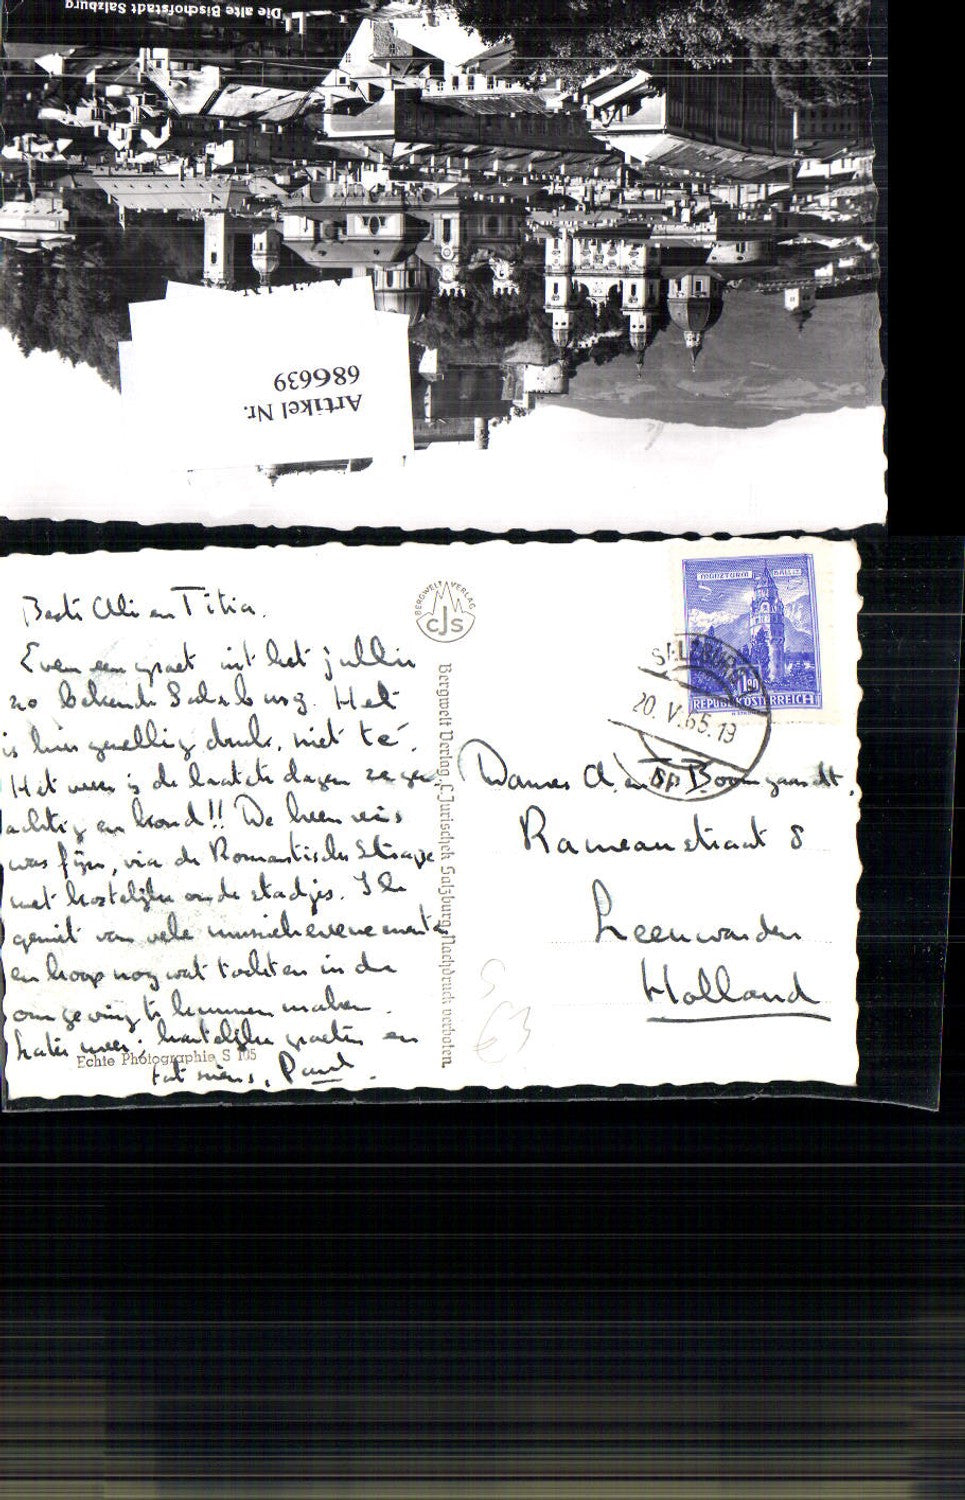 Die alte Bischofstadt Salzburg
Artikel Nr.
686639
Beste Alie en Titia.
Even een groet uit het jullie
zo bekende Salzburg. Het
is hier gezellig druk, niet te.
Het weer is de laatste dagen zeer
achtig en koud!! De heenreis
was fijn, via de Romantische Strasse
met kostelijke oude stadjes. Ik
geniet van vele muziekevenementen
en hoop nog wat tochten in de
omgeving te kunnen maken.
Later meer; hartelijke groeten en
tot ziens, Paul.
Echte Photographie S 105
BERGWELT VERLAG
CJS
Bergwelt Verlag, C. Jurischek Salzburg, Nachdruck verboten.
MÜNZTURM HALL I.T.
1.80
REPUBLIK ÖSTERREICH
SALZBURG
20. V. 65. 19
Dames A. en T. Boomgaardt,
Rameaustraat 8
Leeuwarden
Holland